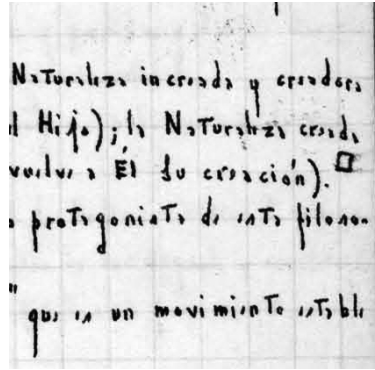 Naturaleza increada y creadora
l Hijo); la Naturaleza creada
vuelve a Él su creación).
protagonista de esta filoso
" que es un movimiento estable